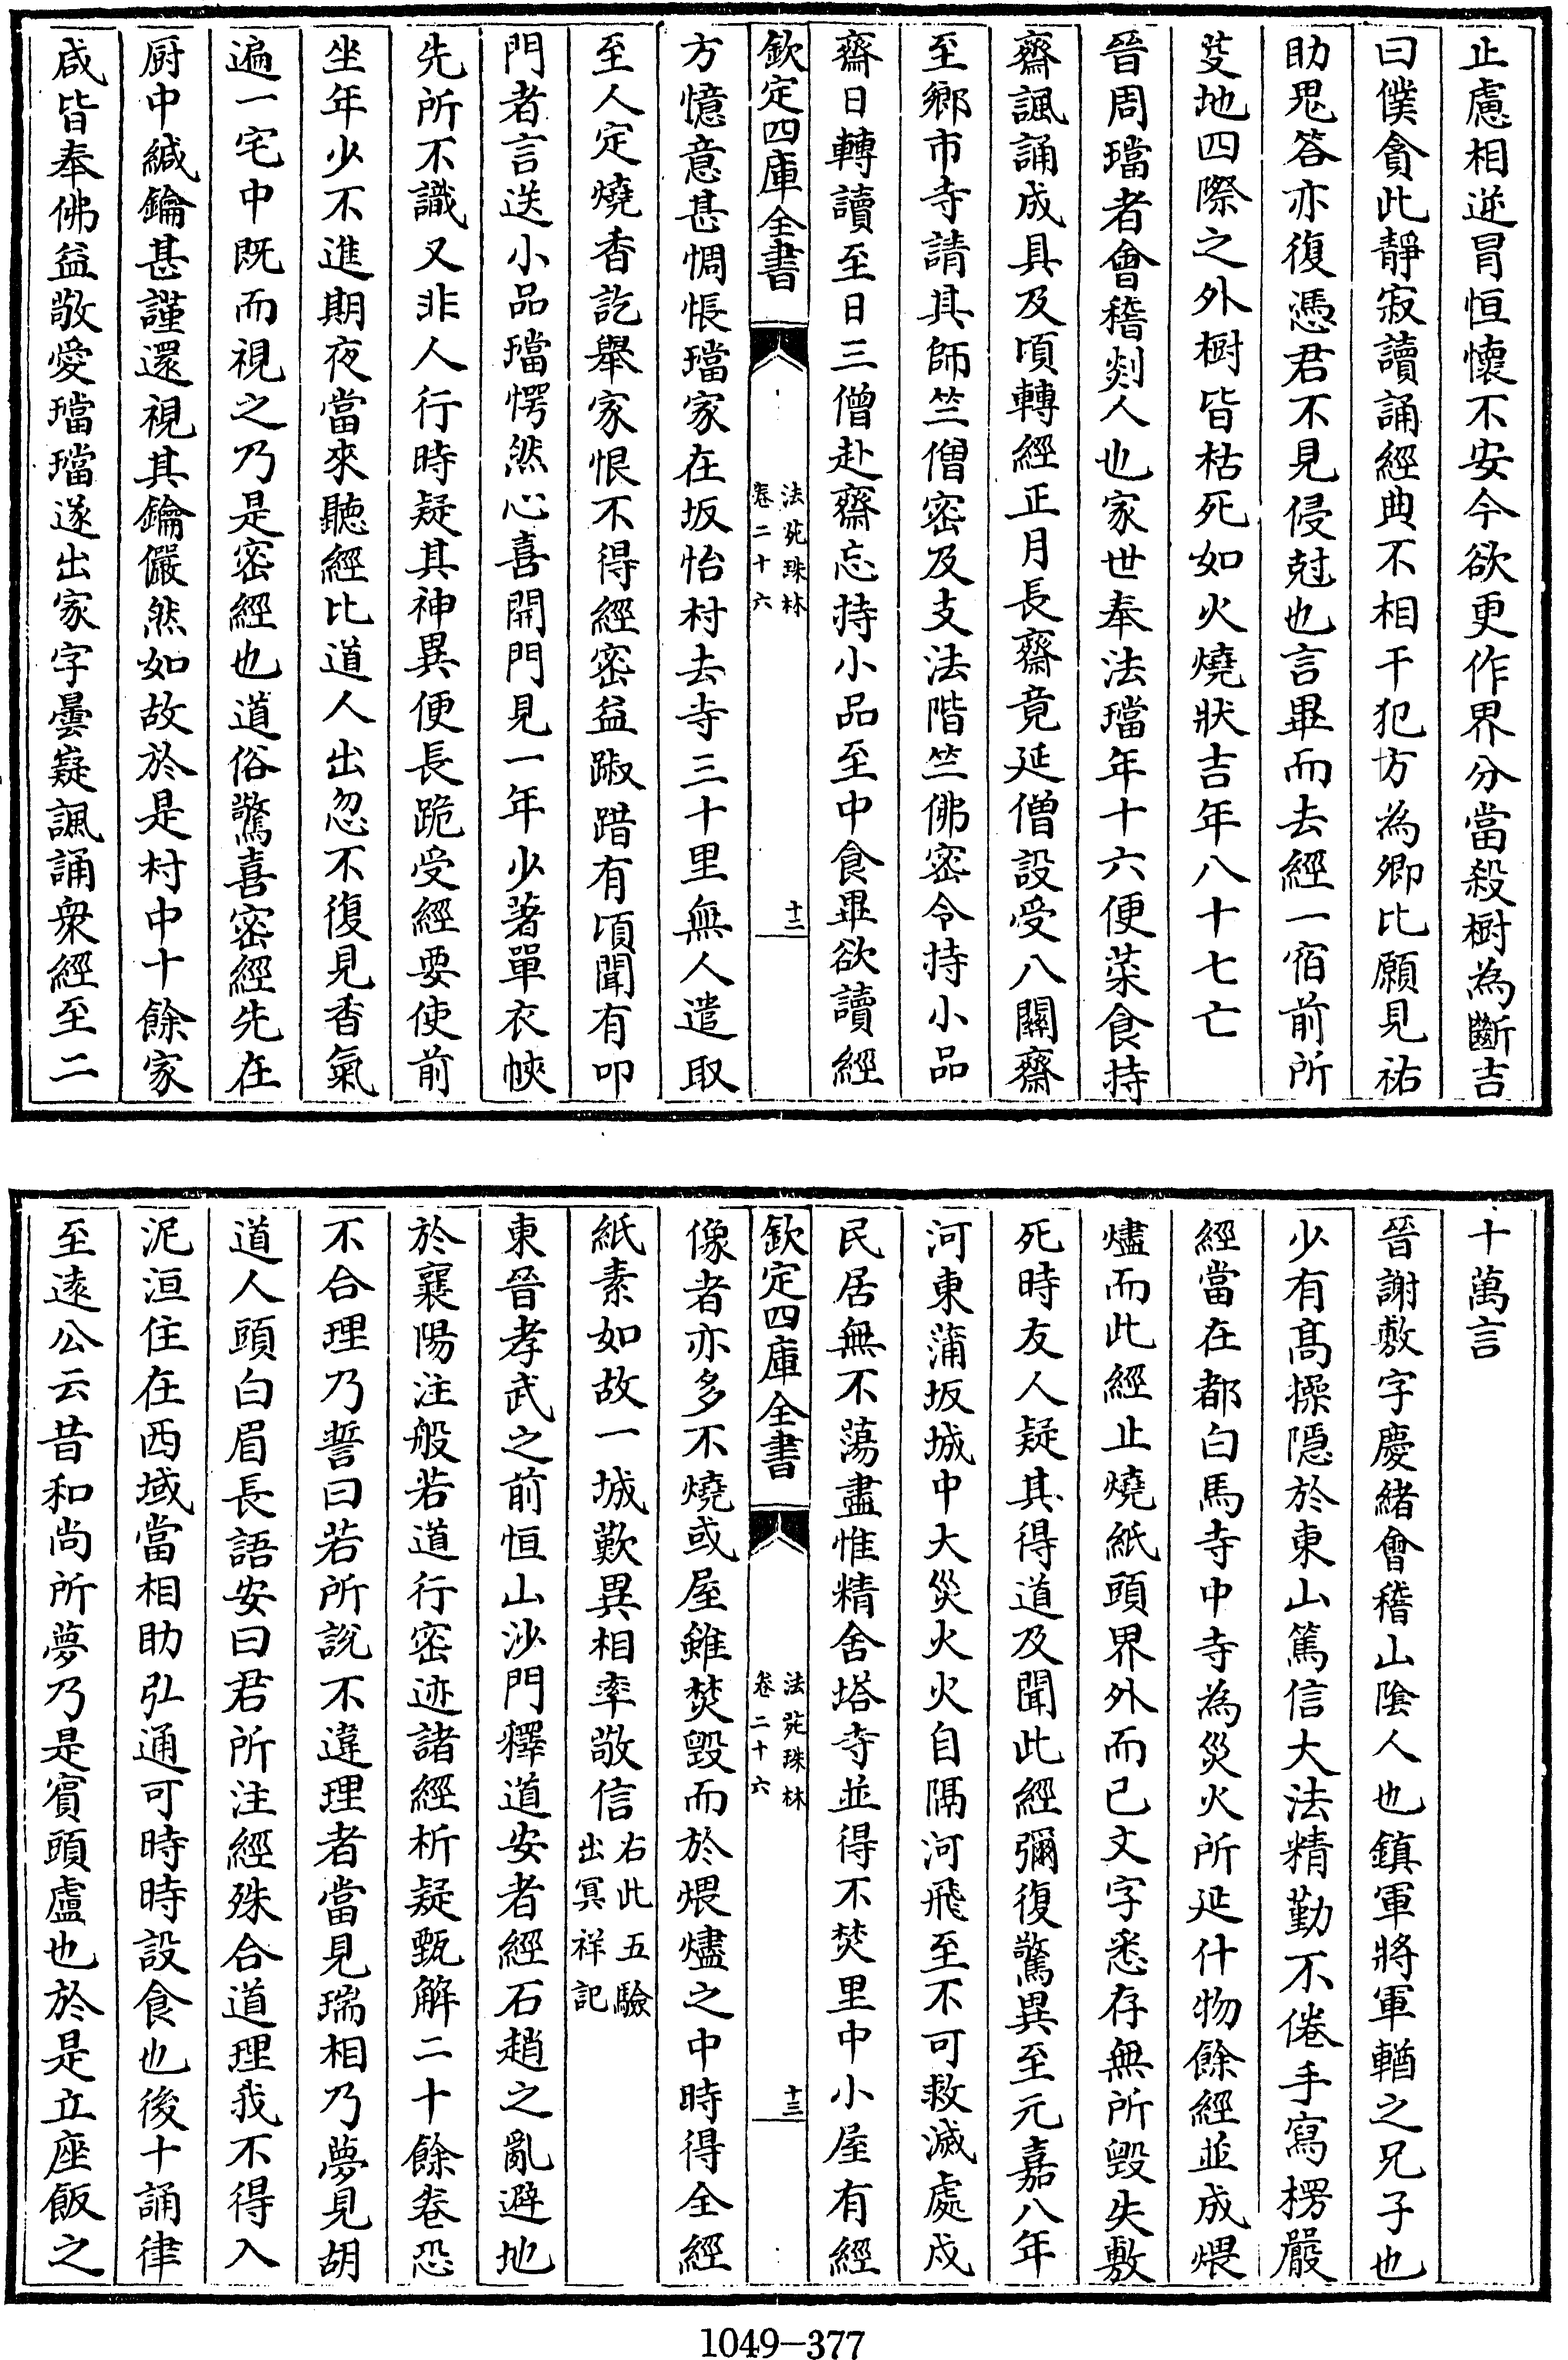 止慮相逆冒恒懷不安今欲更作界分當殺樹為斷吉
曰僕貪此靜寂讀誦經典不相干犯方為卿比願見祐
助鬼答亦復憑君不見侵尅也言畢而去經一宿前所
芟地四際之外樹皆枯死如火燒狀吉年八十七亡
晉周璫者會稽剡人也家世奉法璫年十六便菜食持
齋諷誦成具及頃轉經正月長齋竟延僧設受八關齋
至鄉市寺請其師竺僧密及支法階竺佛密令持小品
齋日轉讀至日三僧赴齋忘持小品至中食畢欲讀經
欽定四庫全書
法苑珠林
卷二十六
十二
方憶意甚惆悵璫家在坂怡村去寺三十里無人遣取
至人定燒香訖舉家恨不得經密益踧踖有頃聞有叩
門者言送小品璫愕然心喜開門見一年少著單衣㡊
先所不識又非人行時疑其神異便長跪受經要使前
坐年少不進期夜當來聽經比道人出忽不復見香氣
遍一宅中既而視之乃是密經也道俗驚喜密經先在
廚中緘鑰甚謹還視其鑰儼然如故於是村中十餘家
咸皆奉佛益敬愛璫璫遂出家字曇嶷諷誦衆經至二
十萬言
晉謝敷字慶緒會稽山陰人也鎮軍將軍輶之兄子也
少有髙操隱於東山篤信大法精勤不倦手寫楞嚴
經當在都白馬寺中寺為災火所延什物餘經並成煨
燼而此經止燒紙頭界外而已文字悉存無所毀失敷
死時友人疑其得道及聞此經彌復驚異至元嘉八年
河東蒲坂城中大災火火自隔河飛至不可救滅處戍
民居無不蕩盡惟精舍塔寺並得不焚里中小屋有經
欽定四庫全書
法苑珠林
卷二十六
十三
像者亦多不燒或屋雖焚毀而於煨燼之中時得全經
紙素如故一城歎異相率敬信右此五驗出冥祥記
東晉孝武之前恒山沙門釋道安者經石趙之亂避地
於襄陽注般若道行密迹諸經析疑甄解二十餘卷恐
不合理乃誓曰若所說不違理者當見瑞相乃夢見胡
道人頭白眉長語安曰君所注經殊合道理我不得入
泥洹住在西域當相助弘通可時時設食也後十誦律
至遠公云昔和尚所夢乃是賓頭盧也於是立座飯之
1049-377